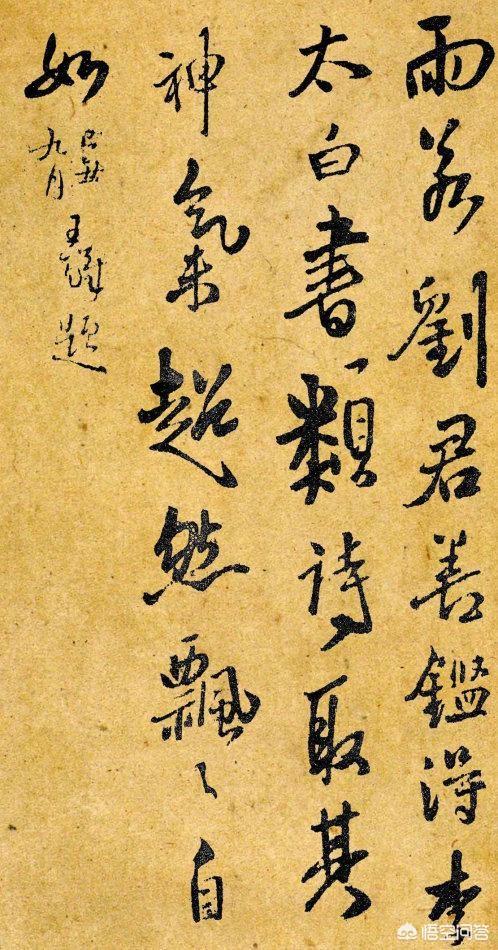 雨若劉君善鑑得李
太白書類詩取其
神氣超然飄々自
如
九月
王鐸題
悟空问答